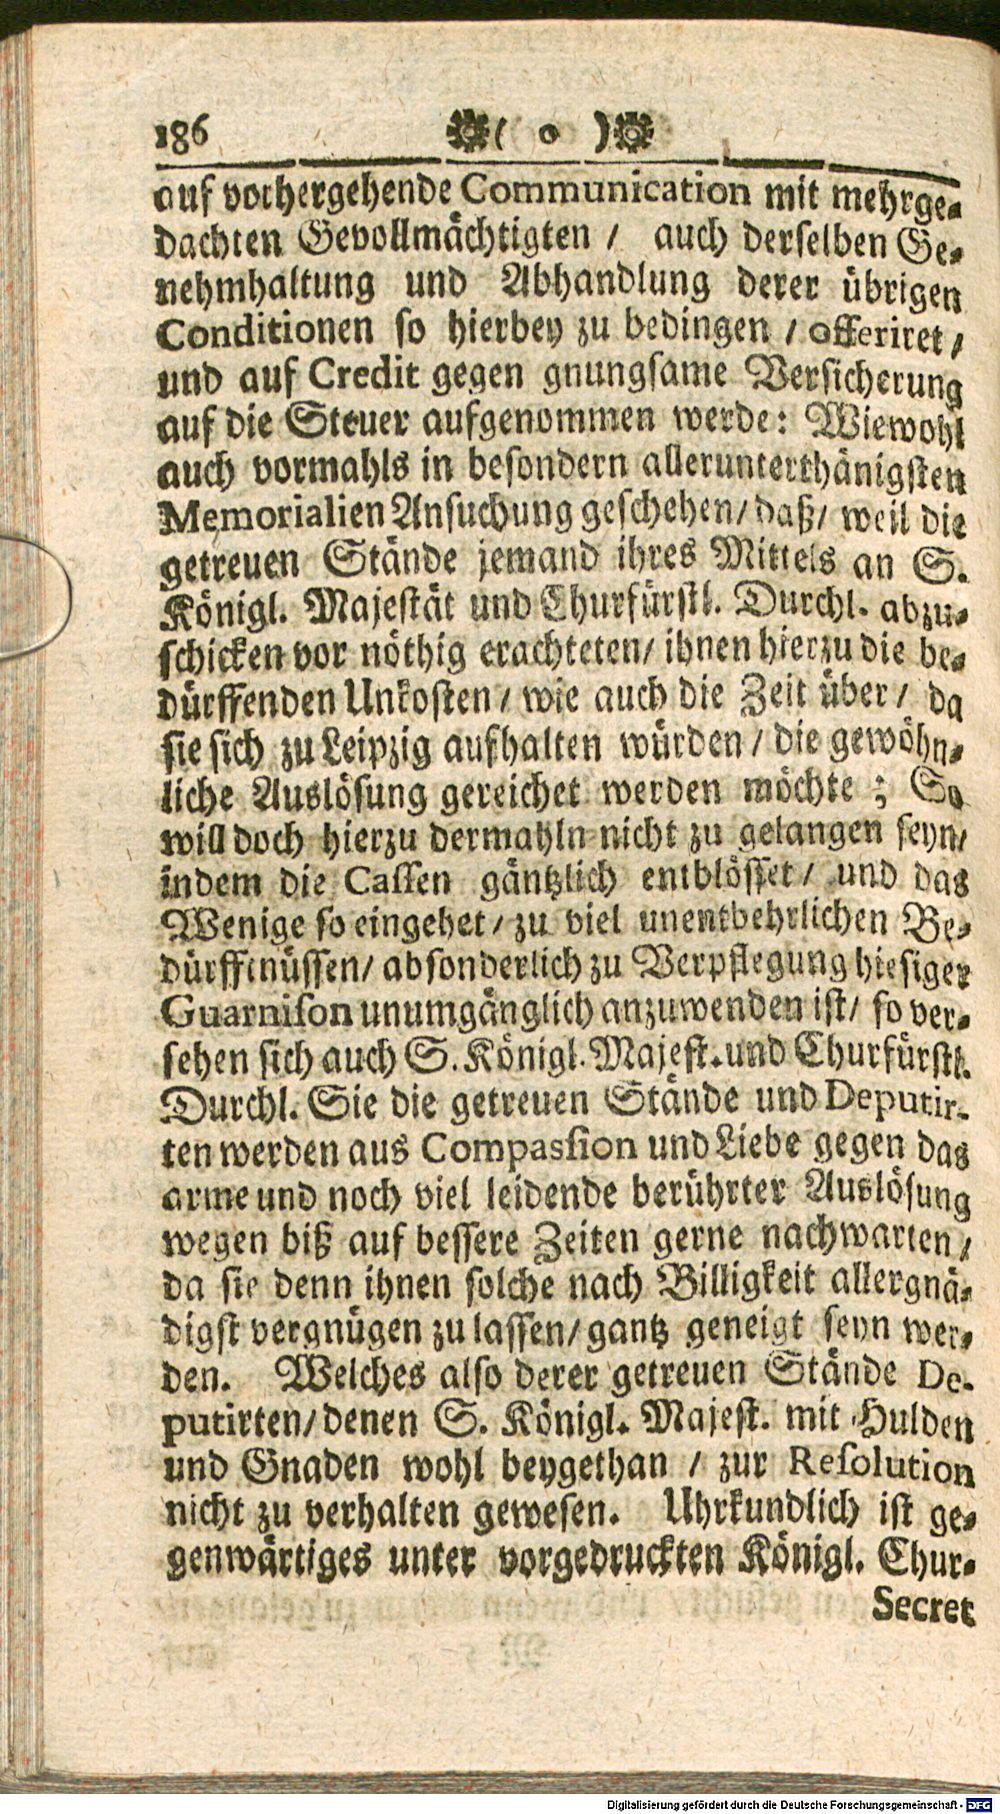 186 ( o )
auf vorhergehende Communication mit mehrge-
dachten Gevollmächtigten / auch derselben Ge-
nehmhaltung und Abhandlung derer übrigen
Conditionen so hierbey zu bedingen / offeriret /
und auf Credit gegen gnungsame Versicherung
auf die Steuer aufgenommen werde: Wiewohl
auch vormahls in besondern allerunterthänigsten
Memorialien Ansuchung geschehen / daß / weil die
getreuen Stände jemand ihres Mittels an S.
Königl. Majestät und Churfürstl. Durchl. abzu-
schicken vor nöthig erachteten / ihnen hierzu die be-
dürffenden Unkosten / wie auch die Zeit über / da
sie sich zu Leipzig aufhalten würden / die gewöhn-
liche Auslösung gereichet werden möchte ; So
will doch hierzu dermahln nicht zu gelangen seyn /
indem die Cassen gäntzlich entblösset / und das
Wenige so eingehet / zu viel unentbehrlichen Be-
dürffnüssen / absonderlich zu Verpflegung hiesiger
Guarnison unumgänglich anzuwenden ist / so ver-
sehen sich auch S. Königl. Majest. und Churfürstl.
Durchl. Sie die getreuen Stände und Deputir-
ten werden aus Compassion und Liebe gegen das
arme und noch viel leidende berührter Auslösung
wegen biß auf bessere Zeiten gerne nachwarten /
da sie denn ihnen solche nach Billigkeit allergnä-
digst vergnügen zu lassen / gantz geneigt seyn wer-
den. Welches also derer getreuen Stände De-
putirten / denen S. Königl. Majest. mit Hulden
und Gnaden wohl beygethan / zur Resolution
nicht zu verhalten gewesen. Uhrkundlich ist ge-
genwärtiges unter vorgedruckten Königl. Chur-
Secret
Digitalisierung gefördert durch die Deutsche Forschungsgemeinschaft - DFG